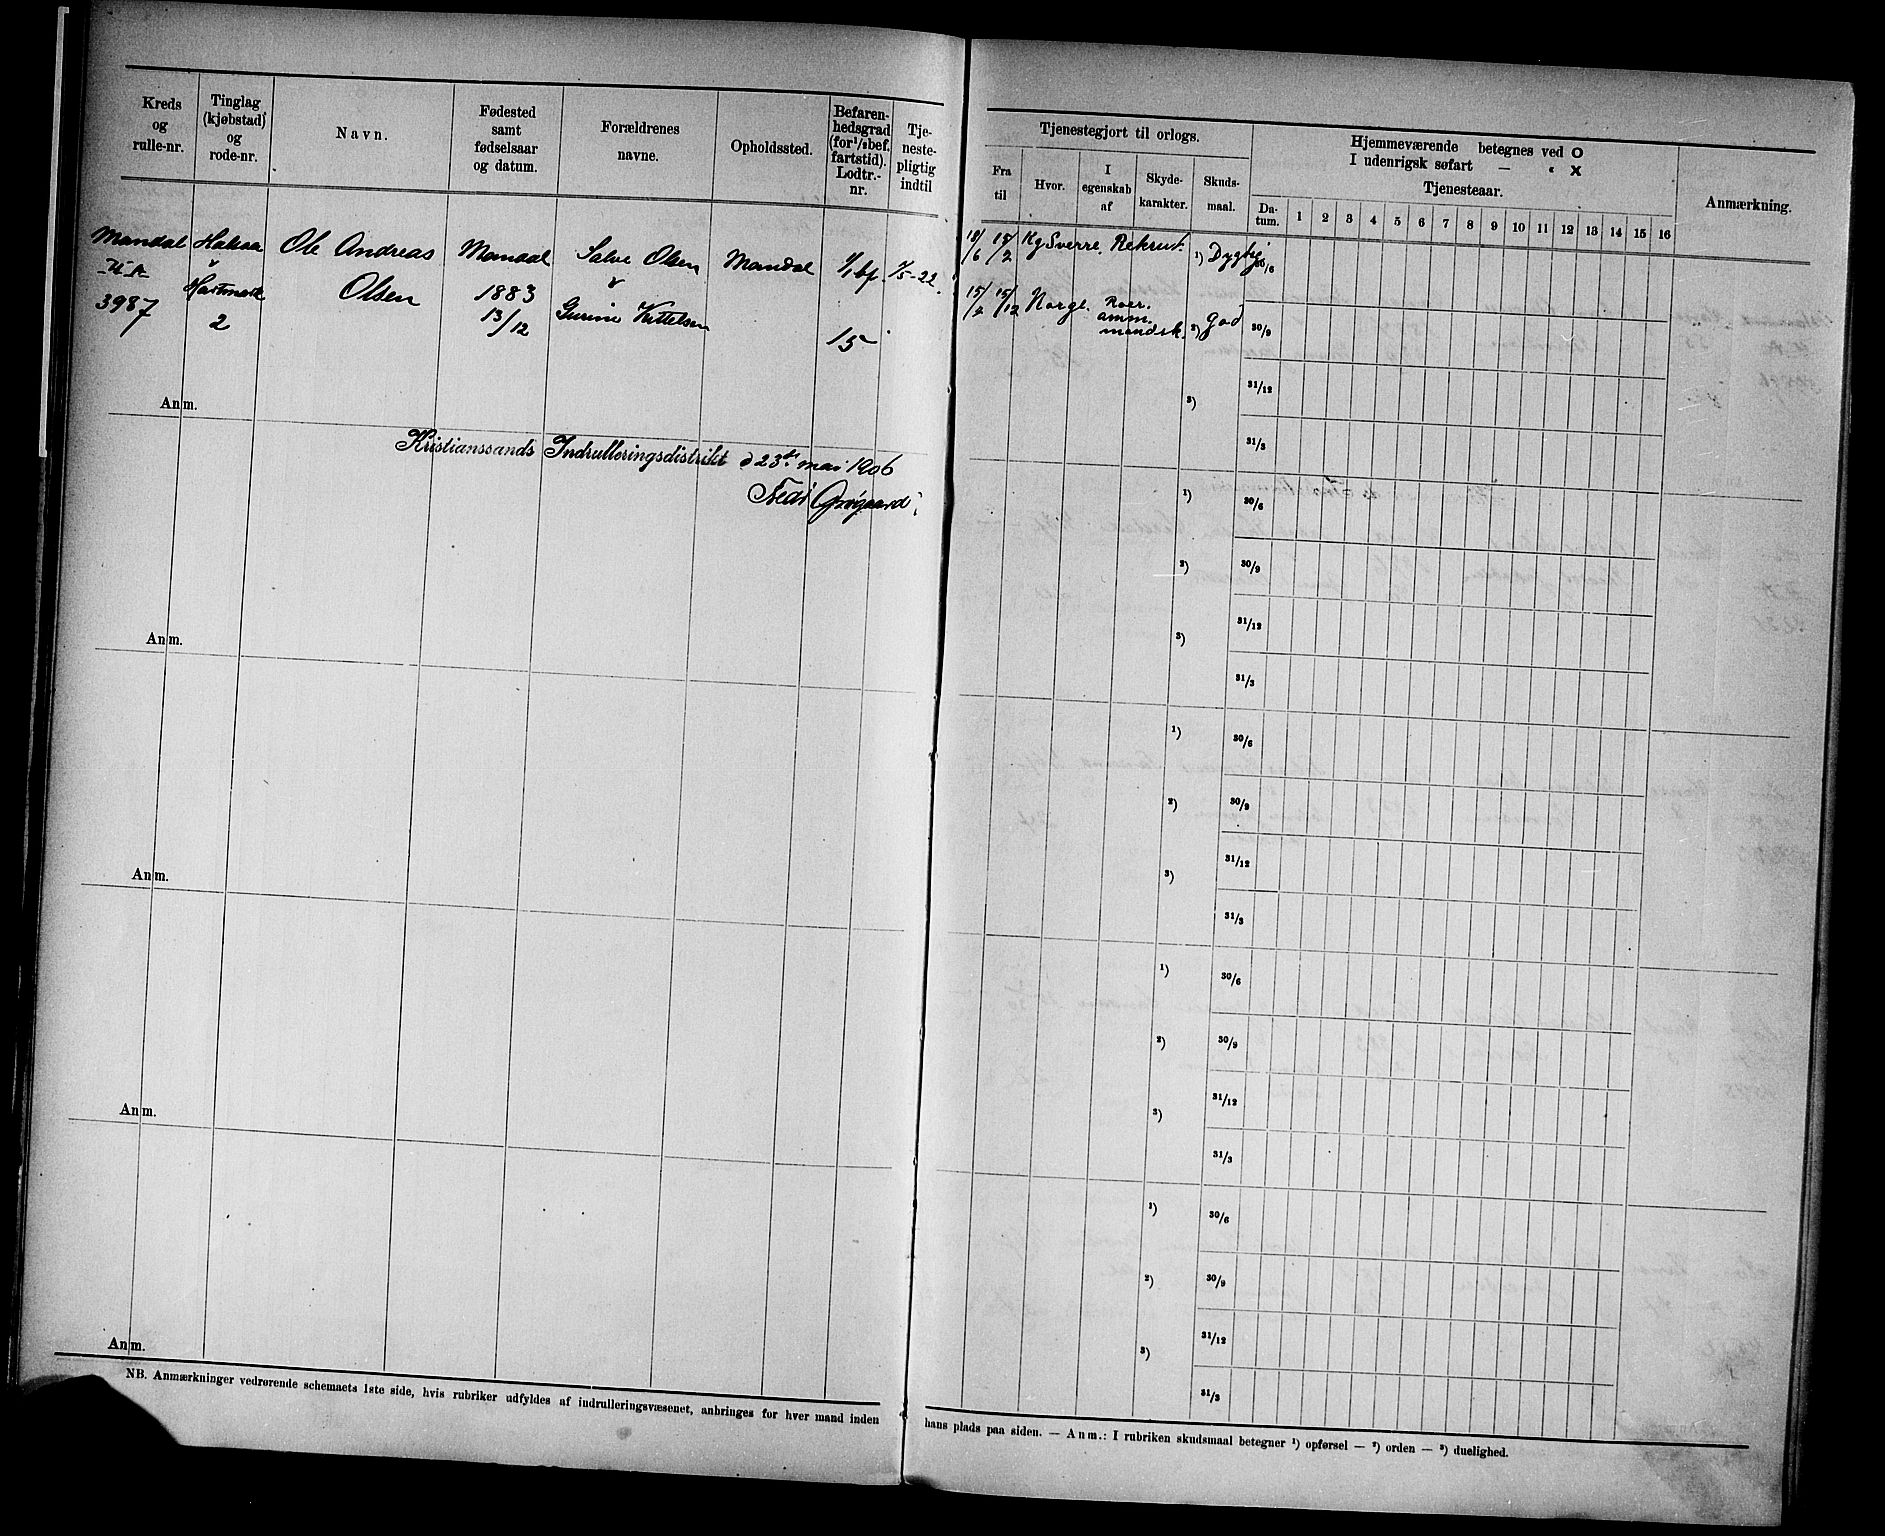 Kreds
og
rulle-nr.
Tinglag
(kjøbstad)
og
rode-nr.
Navn.
Fødested
samt
fødselsaar
og datum.
Forældrenes
navne.
Opholdssted.
Befaren-
hedsgrad
(for 1/1 bef.
fartstid).
Lodtr.-
nr.
Tje-
neste-
pligtig
indtil
Mandal
3987
Halsaa
&
Hartmark
2
Ole Andreas
Olsen
Mandal
1883
13/12
Salve Olsen
&
Gurine Kittelsen
Mandal
1/1 bf.
15
1/5-22.
Anm.
Kristianssands Indrulleringsdistrikt d 23de mai 1906
Anm.
Anm.
Anm.
Anm.
NB. Anmærkninger vedrørende schemaets 1ste side, hvis rubriker udfyldes af indrulleringsvæsenet, anbringes for hver mand inden
Tjenestegjort til orlogs.
Fra
til
Hvor.
I
egenskab
af
Skyde-
karakter.
Skuds-
maal.
Hjemmeværende betegnes ved O
I udenrigsk søfart — " X
Tjenesteaar.
Da-
tum.
1 2 3 4 5 6 7 8 9 10 11 12 13 14 15 16
Anmærkning.
18/6 15/2 Kg Sverre. Rekrut. 1) Dygtig 30/6
15/2 15/12 Norge. Roer.
amm.
mandsk. 2) god 30/9
3) 31/12
31/3
1) 30/6
2) 30/9
3) 31/12
31/3
1) 30/6
2) 30/9
3) 31/12
31/3
1) 30/6
2) 30/9
3) 31/12
31/3
1) 30/6
2) 30/9
3) 31/12
31/3
hans plads paa siden. — Anm.: I rubriken skudsmaal betegner 1) opførsel — 2) orden — 3) duelighed.